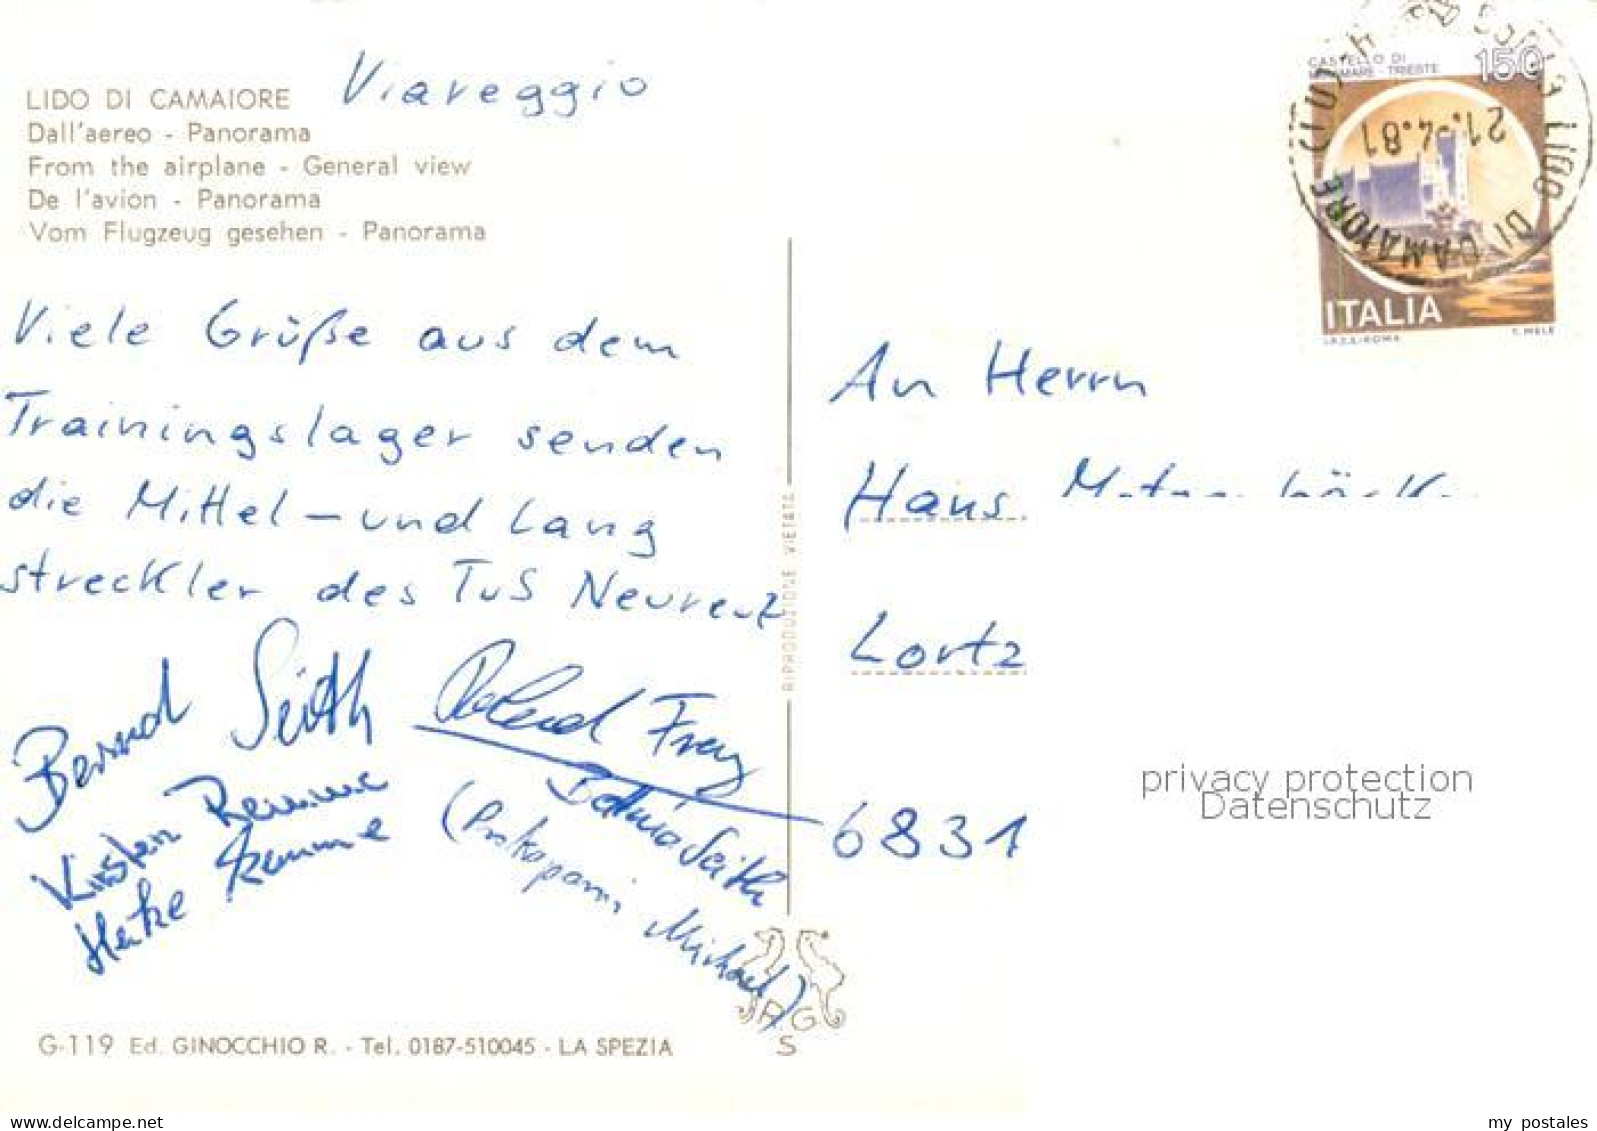 LIDO DI CAMAIORE Viareggio
Dall'aereo - Panorama
From the airplane - General view
De l'avion - Panorama
Vom Flugzeug gesehen - Panorama
Viele Grüße aus dem
Trainingslager senden
die Mittel-und Lang
streckler des TuS Neureut
Bernd Seith Roland Frey
Kirsten Remme
Heike Remme
Bettina Seith
(Prokopani Michael)
G-119 Ed. GINOCCHIO R. - Tel. 0187-510045 - LA SPEZIA
RIPRODUZIONE VIETATA
R G
S
CASTELLO DI
MIRAMARE - TRIESTE
150
ITALIA
I.P.Z.S. ROMA T. MELE
LIDO DI CAMAIORE (LU)
21.04.81
An Herrn
Hans
Lortz
6831
privacy protection
Datenschutz
www.ansichtskartenversand.com
my postales